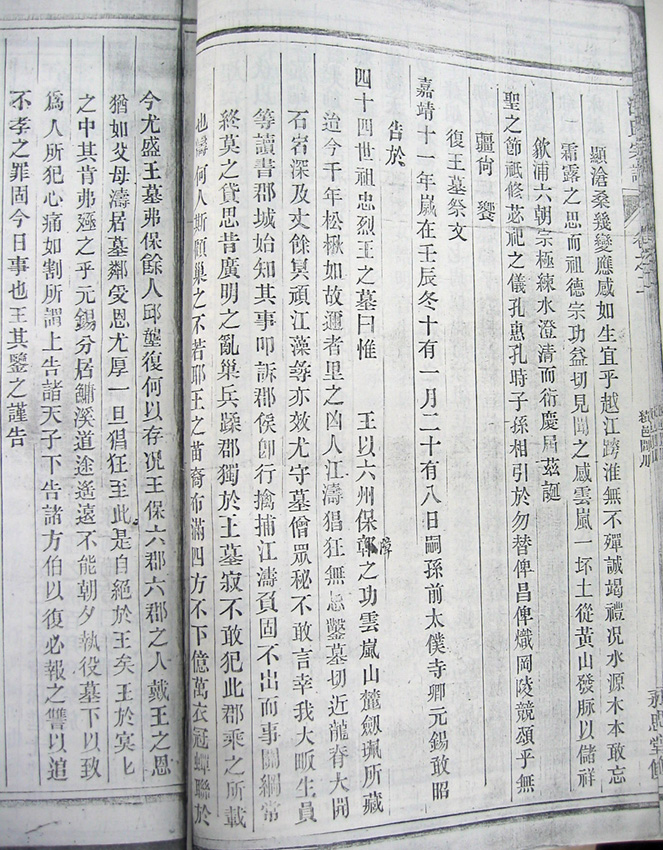 顯滄桑幾變應感如生宜乎越江跨淮無不殫誠竭禮况水源木本敢忘
霜露之思而祖德宗功益切見聞之感雲嵐一坏土從黃山發脉以儲祥
歙浦六朝宗極練水澄清而衍慶居茲誕
聖之節祗修苾祀之儀孔惠孔時子孫相引於勿替俾昌俾熾岡陵競頌乎無
疆尙饗
復王墓祭文
嘉靖十一年歲在壬辰冬十有一月二十有八日嗣孫前太僕寺卿元錫敢昭
告於
四十四世祖忠烈王之墓曰惟 王以六州保鄣之功雲嵐山麓劔珮所藏
迨今千年松楸如故邇者里之凶人江濤猖狂無忌鑿墓切近龍脊大開
石宕深及丈餘冥頑江藻等亦效尤守墓僧眾秘不敢言幸我大畈生員
等讀書郡城始知其事叩訴郡侯卽行擒捕江濤負固不出而事關綱常
終莫之貸思昔廣明之亂巢兵蹂郡獨於王墓寂不敢犯此郡乘之所載
也濤何人斯頑巢之不若耶王之苗裔布滿四方不下億萬衣冠蟬聯於
今尤盛王墓弗保餘人邱壟復何以存况王保六郡六郡之人戴王之恩
猶如父母濤居墓鄰受恩尤厚一旦猖狂至此是自絕於王矣王於寞匕
之中其肯弗殛之乎元錫分居鱅溪道途遙遠不能朝夕執役墓下以致
爲人所犯心痛如割所謂上告諸天子下告諸方伯以復必報之讐以追
不孝之罪固今日事也王其鑒之謹告